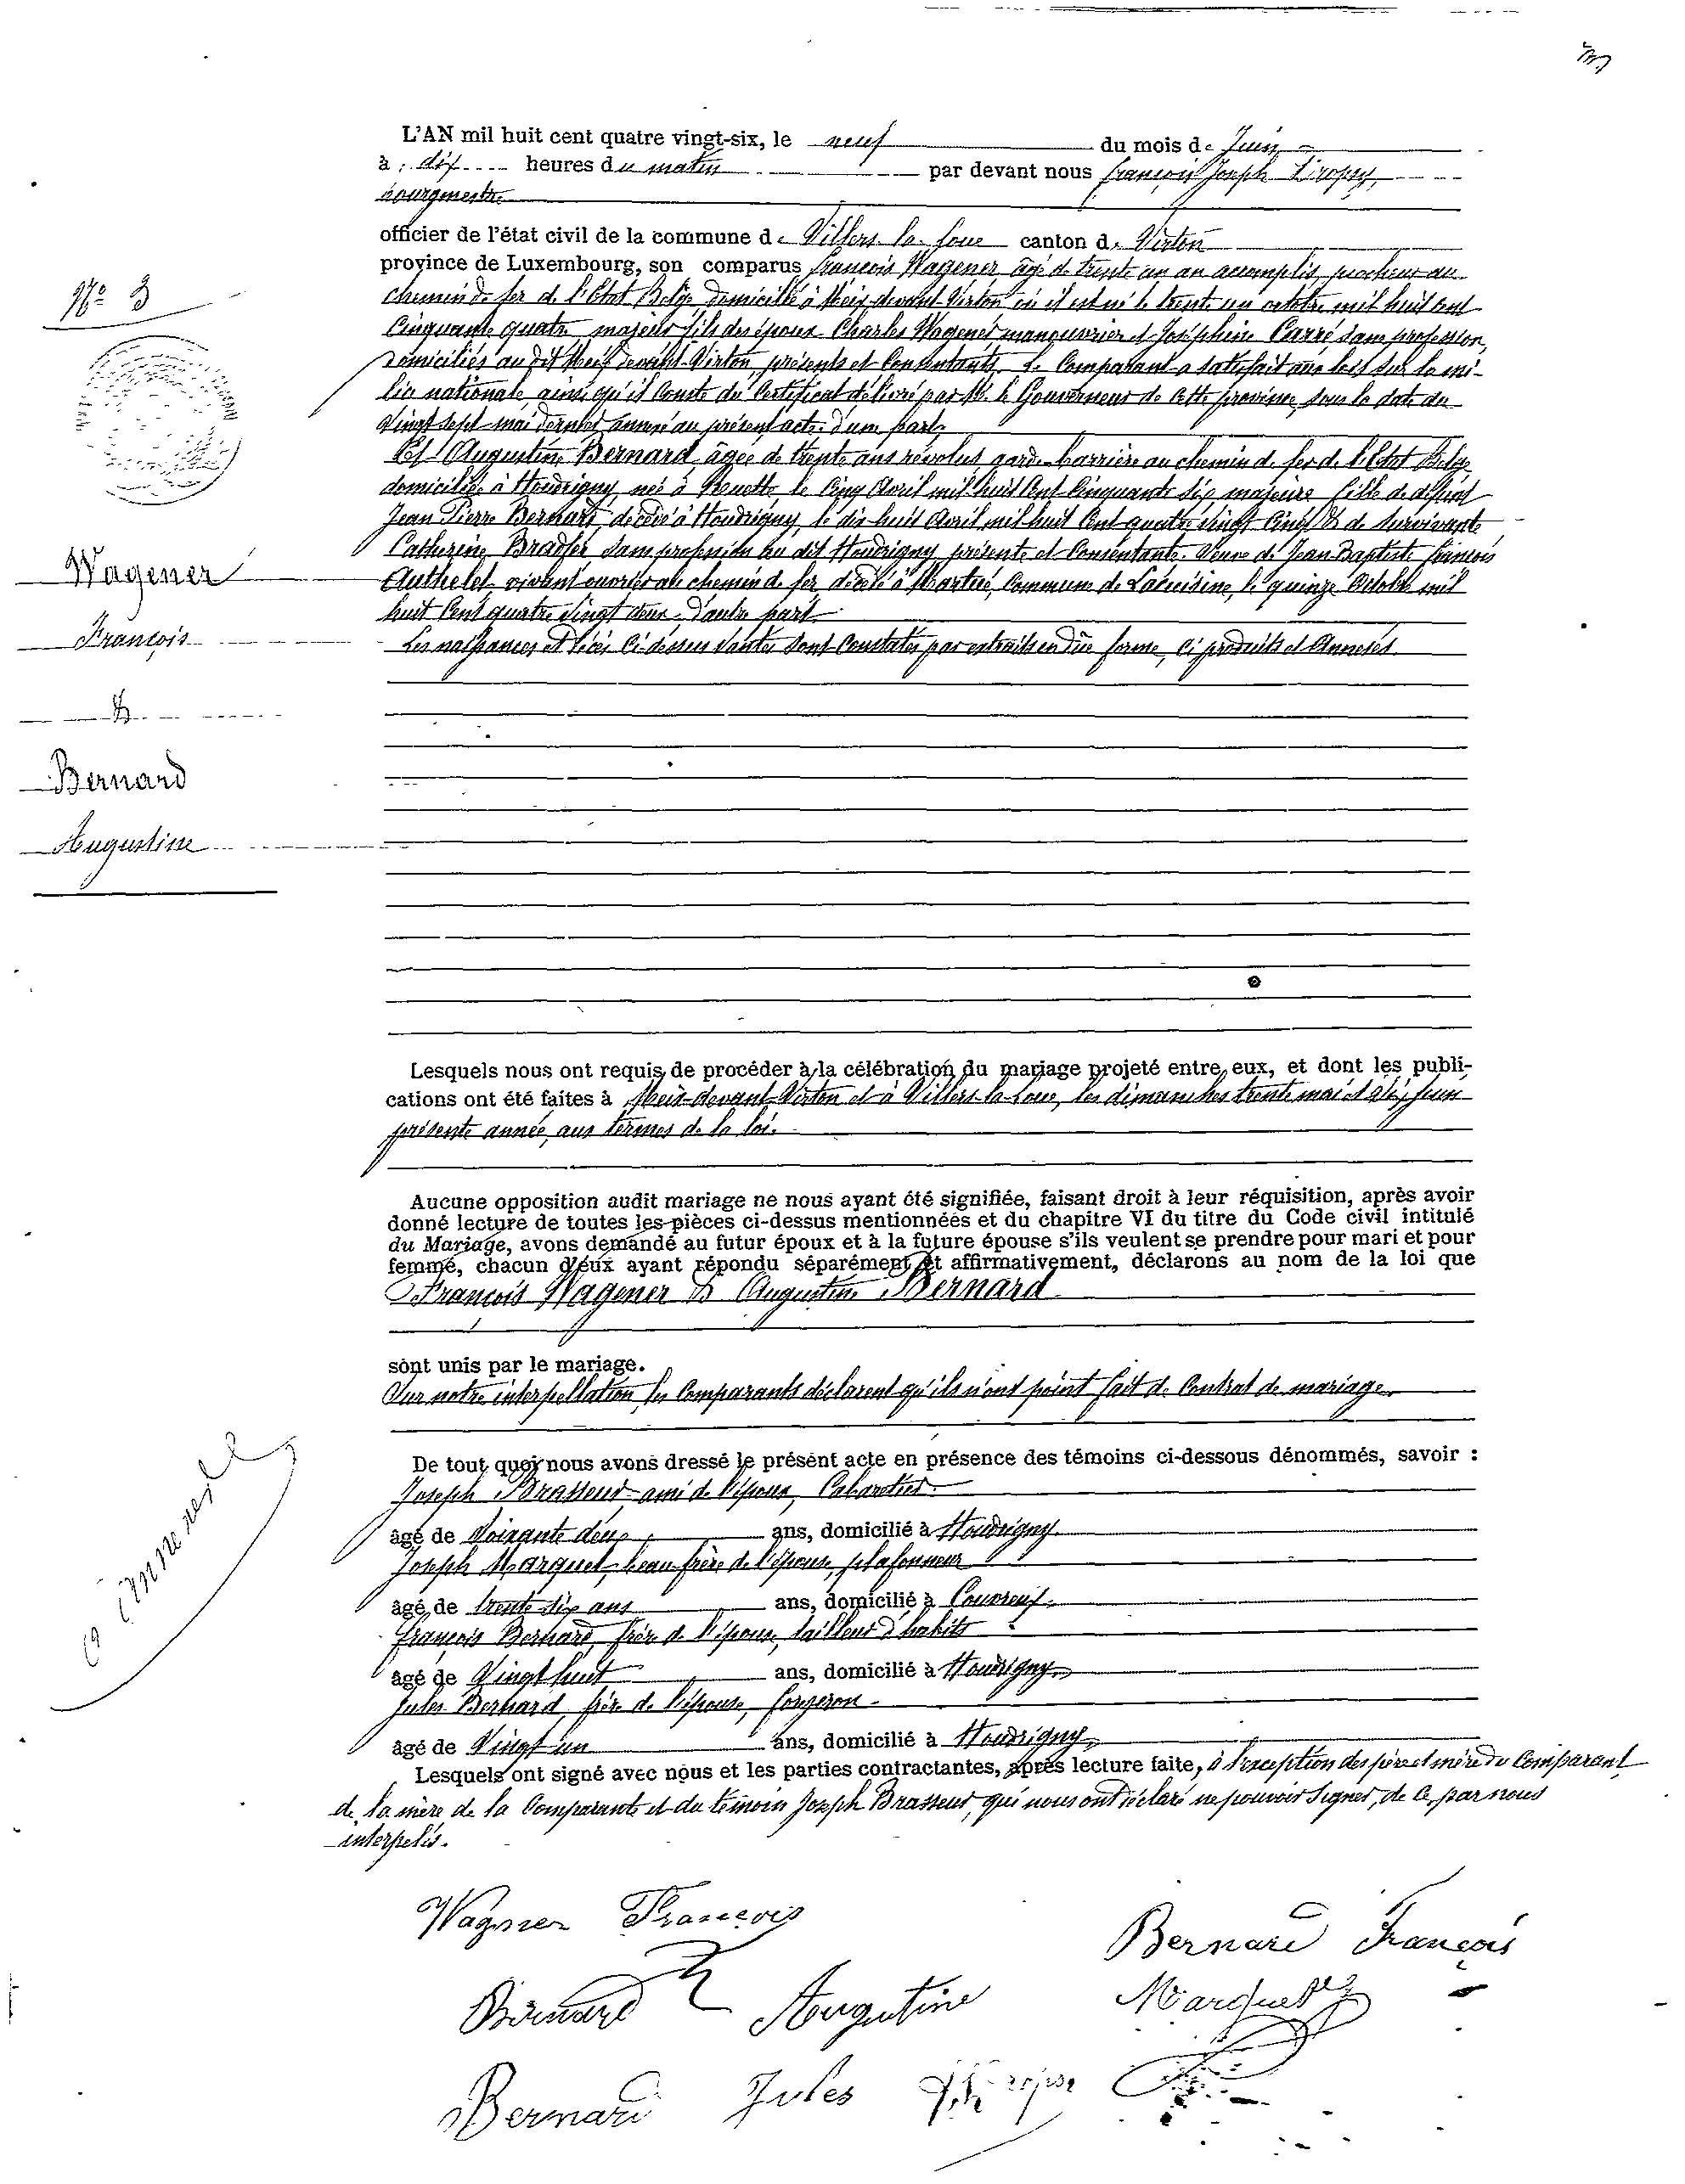 L'AN mil huit cent quatre vingt-six, le neuf du mois de Juin
à dix heures du matin par devant nous François Joseph
bourgmestre
officier de l'état civil de la commune de Villers-la-Loue canton de Virton
province de Luxembourg, son comparus François Wagener âgé de trente un an accomplis, piocheur au
chemin de fer de l'Etat Belge domicilié à Meix-devant-Virton où il est né le trente un octobre mil huit cent
Cinquante quatre majeur fils des époux Charles Wagener manouvrier et Joséphine Carré sans profession,
domiciliés au dit Meix devant-Virton, présents et Consentants. Le Comparant a satisfait aux lois sur la mi-
lice nationale ainsi qu'il Conste du Certificat délivré par M. le Gouverneur de cette province, sous la date du
Vingt sept mai dernier annexé au présent acte. d'une part,
Et Augustine Bernard âgée de trente ans révolus, garde-barrière au chemin de fer de l'Etat Belge
domiciliée à Houdrigny, née à Ruette le Cinq Avril mil huit Cent Cinquante six majeure fille de défunt
Jean Pierre Bernard décédé à Houdrigny, le dix huit Avril mil huit Cent quatre vingt Cinq & de survivante
Catherine sans profession au dit Houdrigny présente et Consentante. Veuve de Jean Baptiste François
Authelet, vivant ouvrier au chemin de fer, décédé à Martué, Commune de Lacuisine, le quinze Octobre mil
huit Cent quatre vingt deux. d'autre part
Les naissances et décès Ci-dessus vantés sont Constatés par extraits en due forme, Ci produits et Annexés.
Nº 3
Wagener
François
&
Bernard
Augustine
Lesquels nous ont requis de procéder à la célébration du mariage projeté entre eux, et dont les publi-
cations ont été faites à Meix-devant-Virton et à Villers-la-Loue, les dimanches trente mai et six Juin
présente année, aux termes de la loi.
Aucune opposition audit mariage ne nous ayant été signifiée, faisant droit à leur réquisition, après avoir
donné lecture de toutes les pièces ci-dessus mentionnées et du chapitre VI du titre du Code civil intitulé
du Mariage, avons demandé au futur époux et à la future épouse s'ils veulent se prendre pour mari et pour
femme, chacun d'eux ayant répondu séparément et affirmativement, déclarons au nom de la loi que
François Wagener & Augustine Bernard
sont unis par le mariage.
Sur notre interpellation les Comparants déclarent qu'ils n'ont point fait de Contrat de mariage.
De tout quoi nous avons dressé le présent acte en présence des témoins ci-dessous dénommés, savoir :
Joseph Brasseur ami de l'époux, Cabaretier
âgé de Soixante deux ans, domicilié à Houdrigny
Joseph Marquet, beau frère de l'épouse, plafonneur
âgé de trente six ans ans, domicilié à Couvreux
François Bernard, frère de l'épouse, tailleur d'habits
âgé de Vingt huit ans, domicilié à Houdrigny
Jules Bernard, frère de l'épouse, forgeron
âgé de Vingt un ans, domicilié à Houdrigny
Lesquels ont signé avec nous et les parties contractantes, après lecture faite, à l'exception des père et mère du Comparant
de la mère de la Comparante et du témoin Joseph Brasseur, qui nous ont déclaré ne pouvoir signer, de ce, par nous
interpelés.
Wagner François
Bernard François
Bernard Augutine
Marquet
Bernard Jules